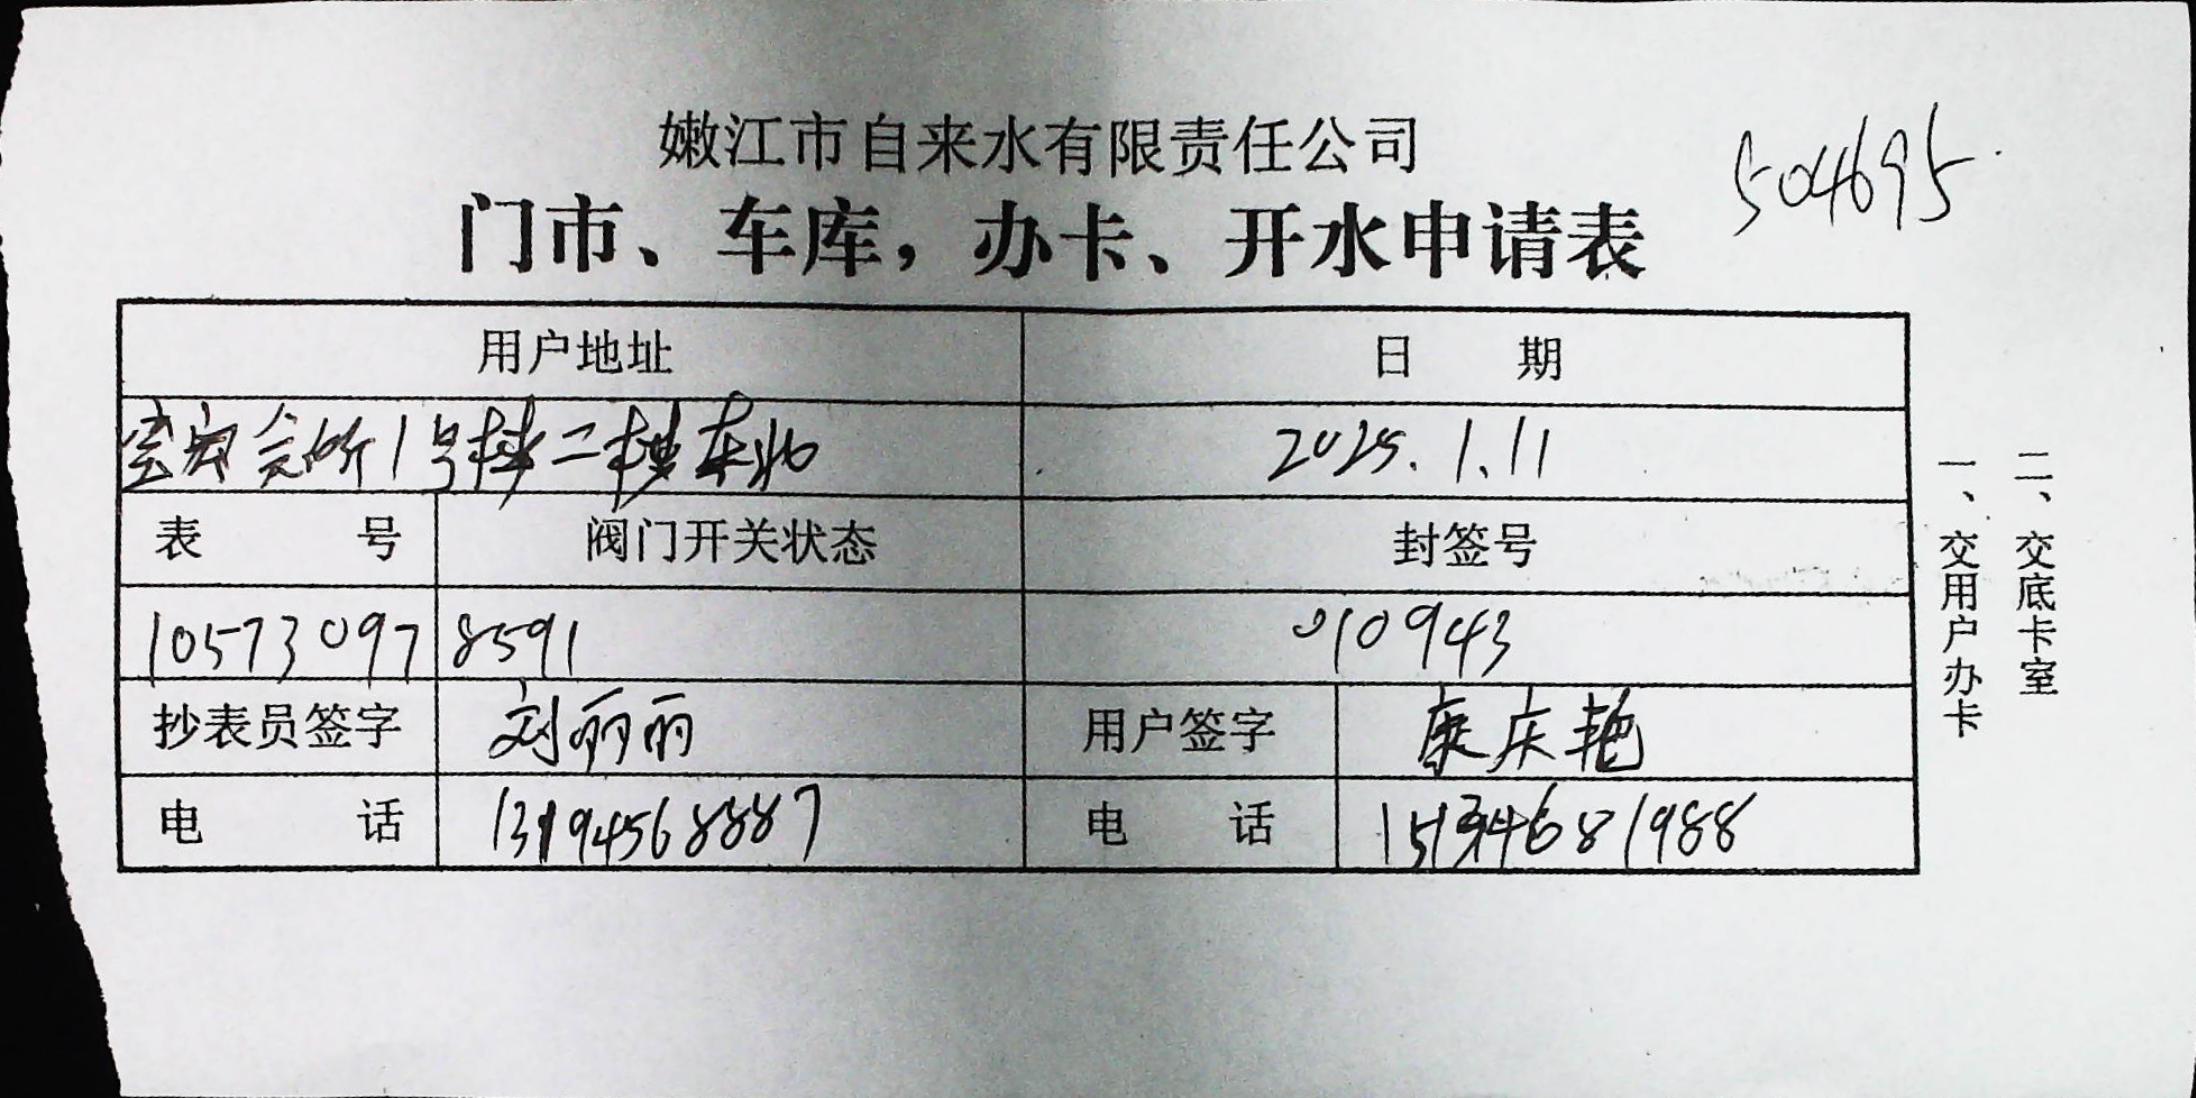 嫩江市自来水有限责任公司
504695
门市、车库，办卡、开水申请表
用户地址 日 期
会所1号楼二楼东北 2025.1.11
表 号 阀门开关状态 封签号
10573097 8591 010943
抄表员签字 刘丽丽 用户签字 康庆艳
电 话 13194568887 电 话 681988
二、交底卡室
一、交用户办卡